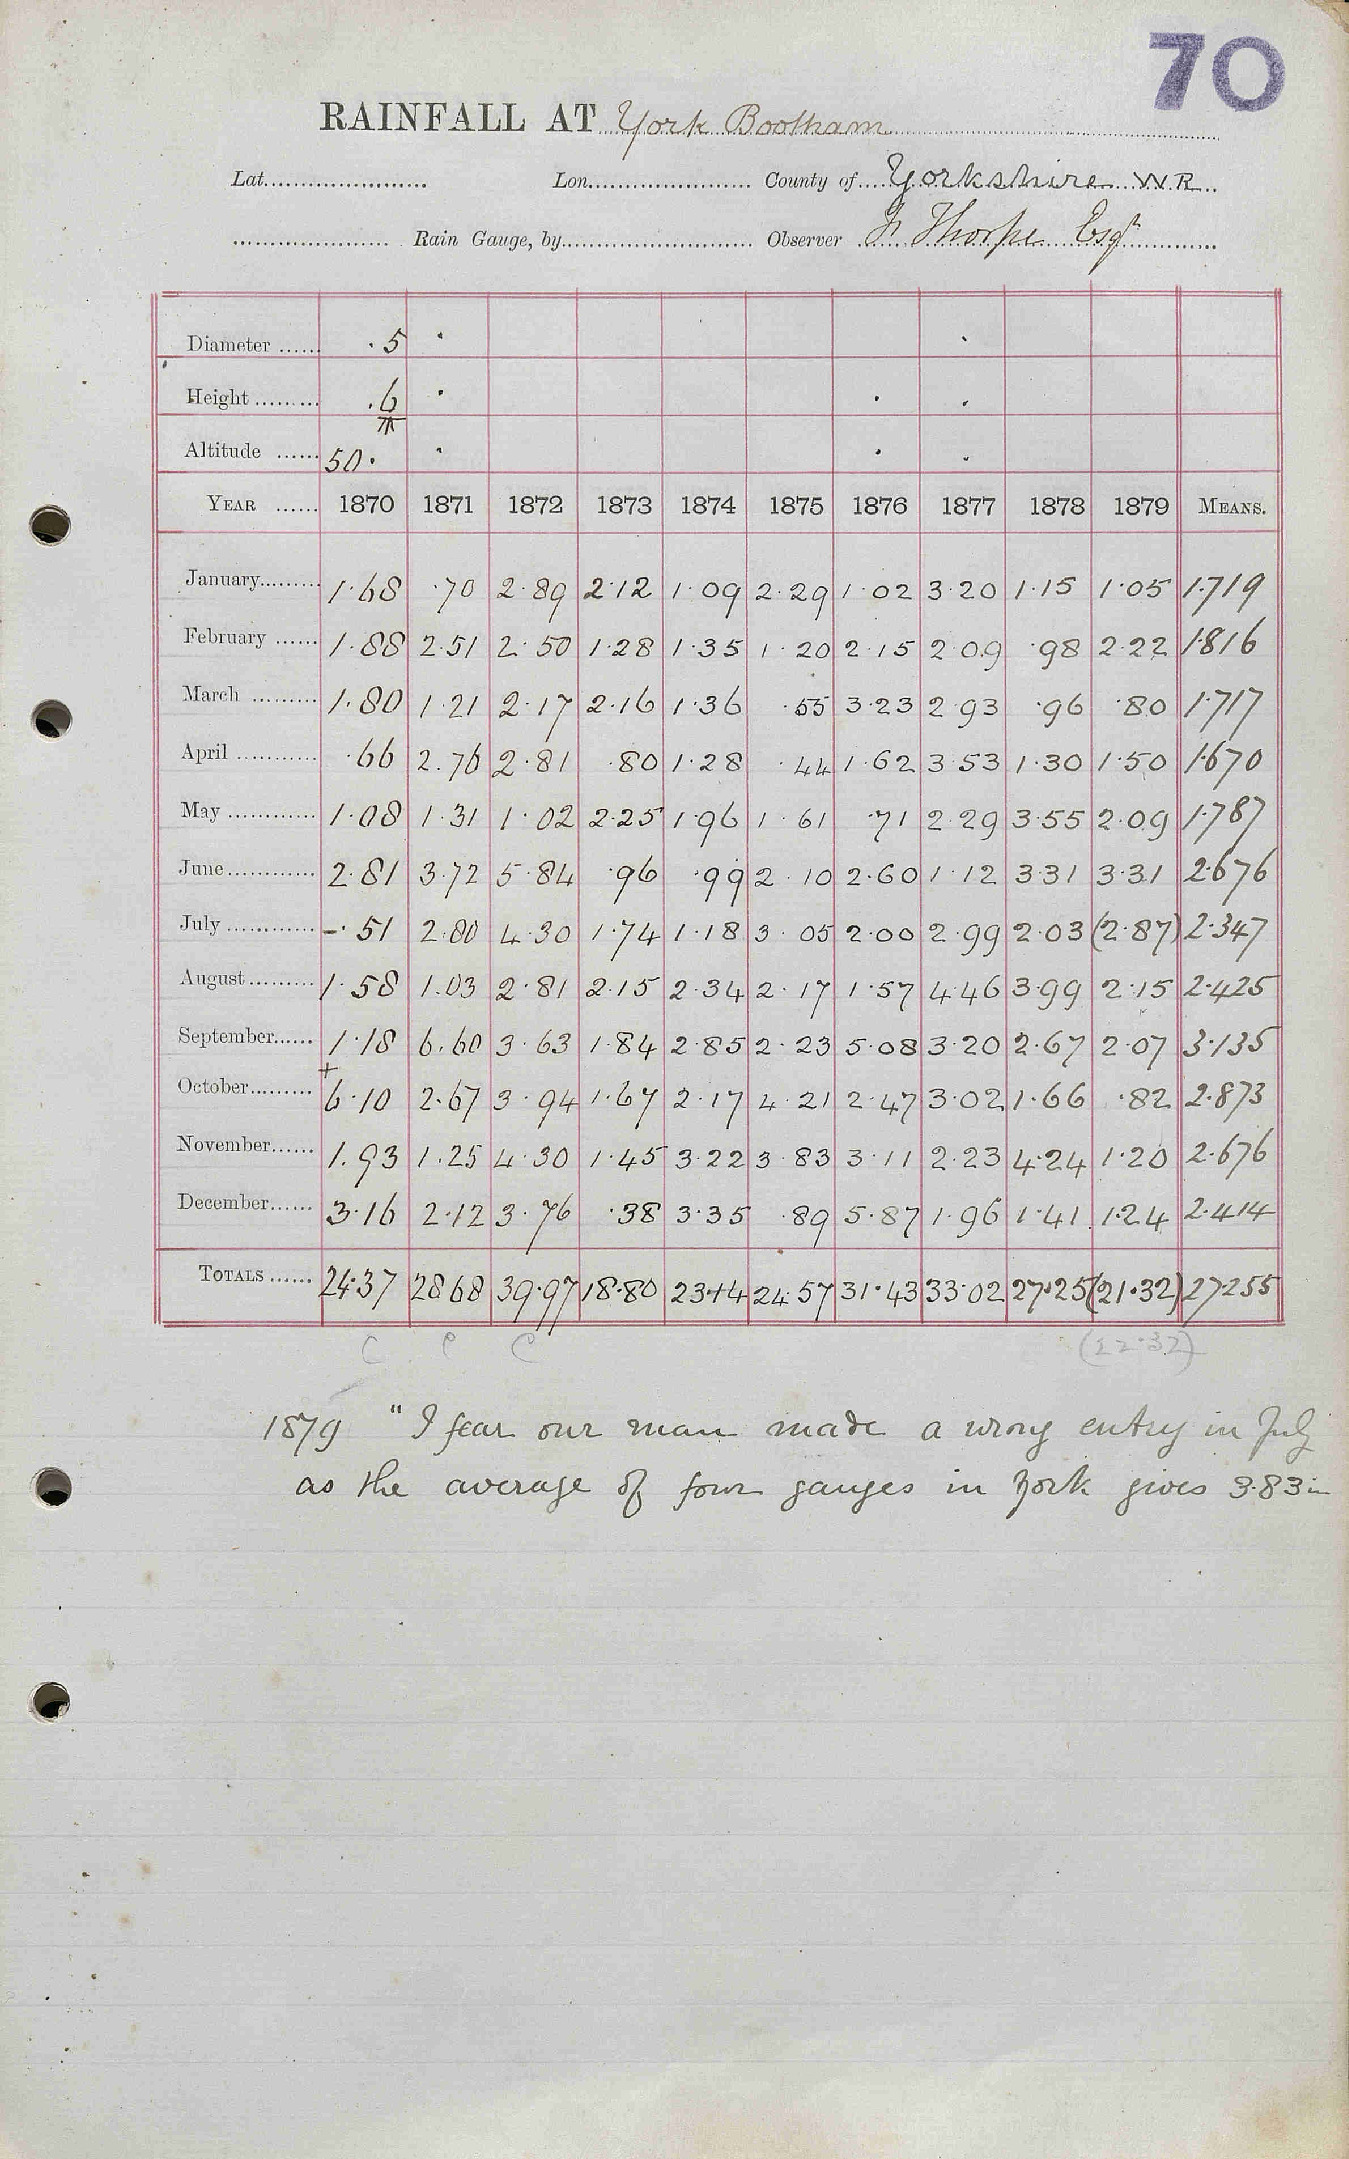 70
RAINFALL AT York Bootham
Lat. Lon. County of Yorkshire W.R.
Rain Gauge, by Observer F Thorpe Esqr
Diameter ...... .5
Height ......... .6
Altitude ...... 50.
YEAR ...... 1870 1871 1872 1873 1874 1875 1876 1877 1878 1879 MEANS.
January......... 1.68 .70 2.89 2.12 1.09 2.29 1.02 3.20 1.15 1.05 1.719
February ...... 1.88 2.51 2.50 1.28 1.35 1.20 2.15 2.09 .98 2.22 1.816
March ......... 1.80 1.21 2.17 2.16 1.36 .55 3.23 2.93 .96 .80 1.717
April ........... .66 2.76 2.81 .80 1.28 .44 1.62 3.53 1.30 1.50 1.670
May ............ 1.08 1.31 1.02 2.25 1.96 1.61 .71 2.29 3.55 2.09 1.787
June............ 2.81 3.72 5.84 .96 .99 2.10 2.60 1.12 3.31 3.31 2.676
July ............ -.51 2.80 4.30 1.74 1.18 3.05 2.00 2.99 2.03 (2.87) 2.347
August......... 1.58 1.03 2.81 2.15 2.34 2.17 1.57 4.46 3.99 2.15 2.425
September...... 1.18 6.60 3.63 1.84 2.85 2.23 5.08 3.20 2.67 2.07 3.135
October......... +6.10 2.67 3.94 1.67 2.17 4.21 2.47 3.02 1.66 .82 2.873
November...... 1.93 1.25 4.30 1.45 3.22 3.83 3.11 2.23 4.24 1.20 2.676
December...... 3.16 2.12 3.76 .38 3.35 .89 5.87 1.96 1.41 1.24 2.414
TOTALS ...... 24.37 28.68 39.97 18.80 23.14 24.57 31.43 33.02 27.25 (21.32) 27.255
C C C (22.32)
1879 "I fear our man made a wrong entry in July
as the average of four gauges in York gives 3.83 in